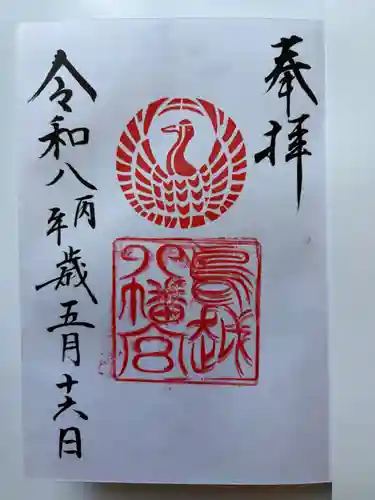 奉拝
鳥越
八幡宮
令和八丙午歳五月十六日